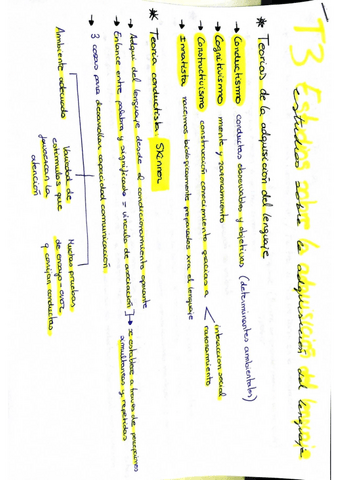 T3 Estudios sobre la adquisición del lenguaje
estudios sobre la adquisición del lenguaje
* Teorías de la adquisición del lenguaje
→ Conductismo conductas observables y objetivas (determinantes ambientales)
→ Cognitivismo mente y razonamiento
→ Constructivismo construcción conocimiento gracias a < interacción social
razonamiento
→ Innatista nacemos biológicamente preparados xra el lenguaje
* Teoría conductista Skinner
→ Adqui del lenguaje desde el condicionamiento operante
→ Enlace entre palabra y significado = vínculo de asociación] → se establece a través de percepciones
simultáneas y repetidas
→ 3 cosas para desarrollar capacidad comunicación
Ambiente adecuado
Variedad de
estímulos que
favorezcan la
atención
Muchas pruebas
de ensayo - error
q corrijan conductas